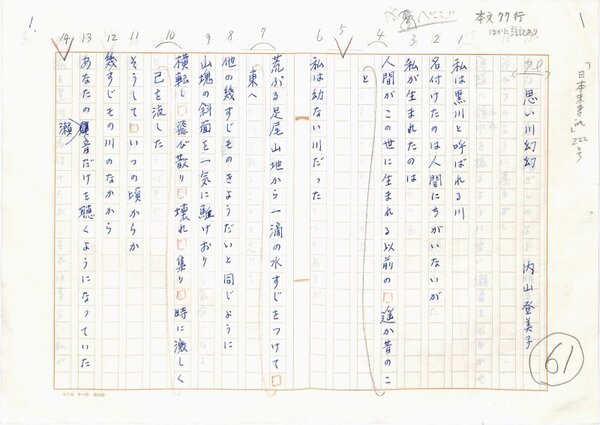 本文77行
「日本未来派」222号
思い川幻幻
内山登美子
61
1 私は黒川と呼ばれる川
2 名付けたのは人間にちがいないが
3 私が生まれたのは
4 人間がこの世に生まれる以前の□遥か昔のこ
と
5
6 私は幼ない川だった
7 荒ぶる足尾山地から一滴の水すじをつけて□
東へ
8 他の幾すじものきようだいと同じように
9 山塊の斜面を一気に駈けおり
10 横転し□飛び散り□壊れ□集り□時に激しく
己を流した
11 そうして□いつの頃からか
12 幾すじもの川のなかから
13 あなたの瀬音だけを聴くようになっていた
14
1